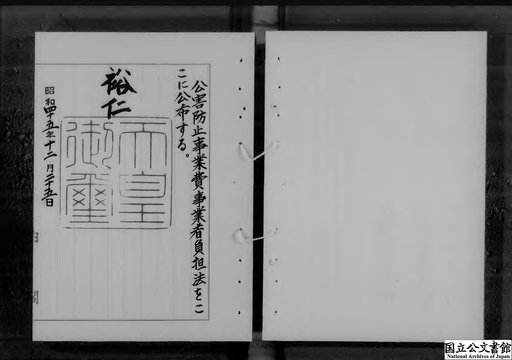 公害防止事業費事業者負担法をこ
こに公布する。
裕仁
天皇
御璽
昭和四十五年十二月二十五日
内閣
国立公文書館
National Archives of Japan